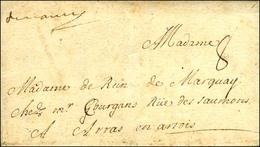 Madame
8
Madame de Rein de Marquay
chez mr Gourgans Rüe des saumons
A Arras en artois